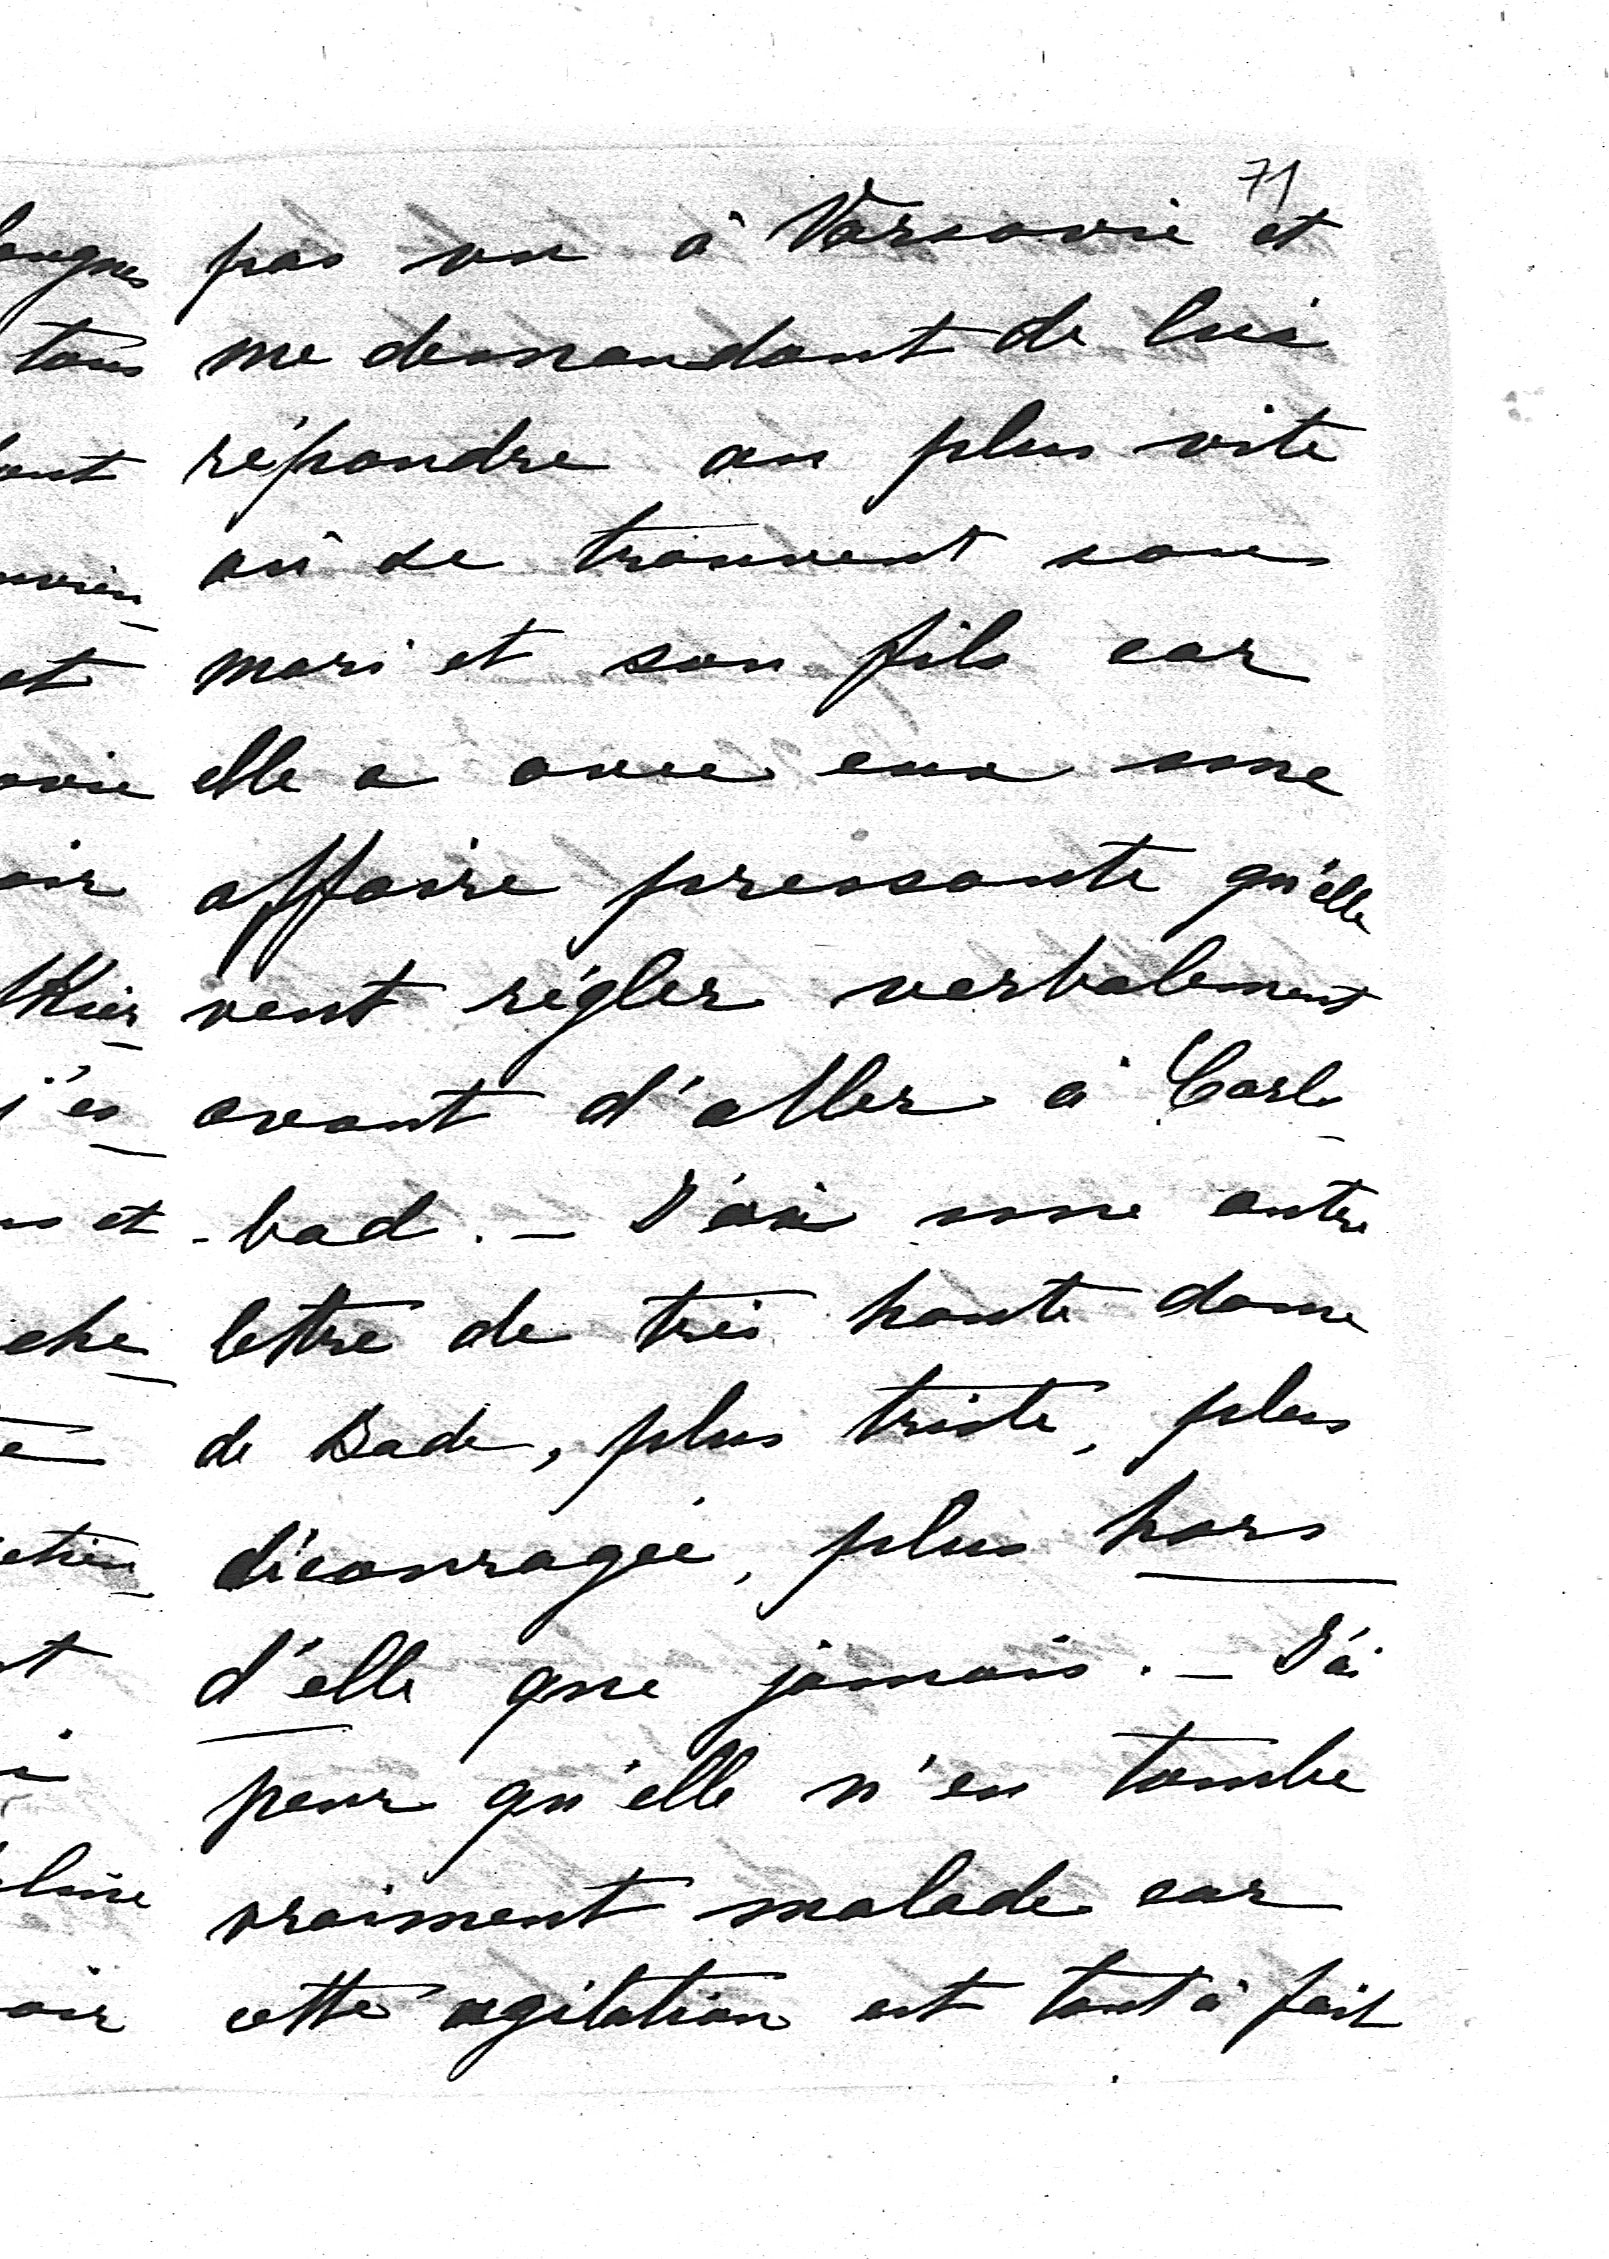 71
pas vu à Varsovie et
me demandant de lui
répondre au plus vite
où se trouvent son
mari et son fils car
elle a avec eux une
affaire pressante qu'elle
veut régler verbalement
avant d'aller à Carls-
-bad. — J'ai une autre
lettre de très haute dame
de Bade, plus triste, plus
découragée, plus hors
d'elle que jamais. — J'ai
peur qu'elle n'en tombe
vraiment malade car
cette agitation est tout à fait